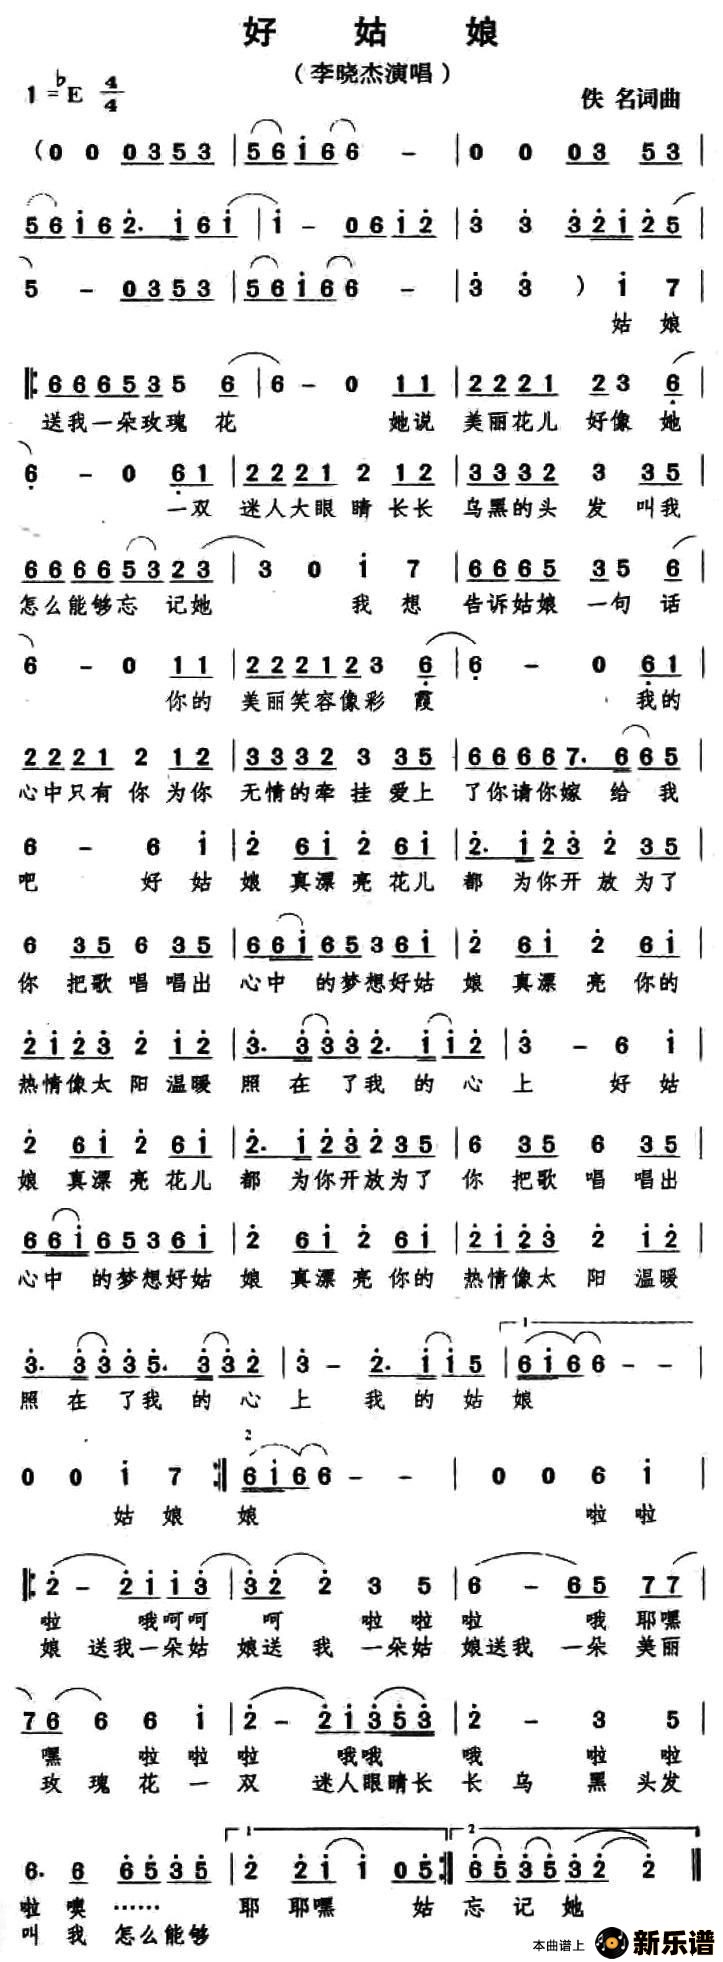 好 姑 娘
（李晓杰演唱）
1=♭E 4/4
佚 名词曲
(0 0 0353 | 56i66 - | 0 0 03 53 |
56i62. i6i | i - 06i2 | 3 3 32i25 |
5 - 0353 | 56i66 - | 3 3 ) i 7 |
姑 娘
666535 6 | 6 - 0 11 | 2221 23 6 |
送我一朵玫瑰 花 她说 美丽花儿 好像 她
6 - 0 61 | 2221 2 12 | 3332 3 35 |
一双 迷人大眼 睛 长长 乌黑的头 发 叫我
66665323 | 3 0 i 7 | 6665 35 6 |
怎么能够忘 记她 我 想 告诉姑娘 一句 话
6 - 0 11 | 222123 6 | 6 - 0 61 |
你的 美丽笑容像彩 霞 我的
2221 2 12 | 3332 3 35 | 66667. 665 |
心中只有 你 为你 无情的牵 挂 爱上 了你请你嫁 给 我
6 - 6 i | 2 6i 2 6i | 2. i23 2 35 |
吧 好 姑 娘 真漂 亮 花儿 都 为你开 放 为了
6 35 6 35 | 66i65366i | 2 6i 2 6i |
你 把歌 唱 唱出 心中 的梦想好姑 娘 真漂 亮 你的
2i23 2 i2 | 3. 3332. ii2 | 3 - 6 i |
热情像太 阳 温暖 照 在 了我 的 心 上 好 姑
2 6i 2 6i | 2. i23235 | 6 35 6 35 |
娘 真漂 亮 花儿 都 为你开放为了 你 把歌 唱 唱出
66i65366i | 2 6i 2 6i | 2i23 2 i2 |
心中 的梦想好姑 娘 真漂 亮 你的 热情像太 阳 温暖
3. 3335. 332 | 3 - 2. ii5 | 6i66 - - |
照 在 了我 的 心 上 我 的 姑 娘
0 0 i 7 :| 6i66 - - | 0 0 6 i |
姑 娘 娘 啦 啦
2 - 2ii3 | 32 2 3 5 | 6 - 65 77 |
啦 哦呵呵 呵 啦 啦 啦 哦 耶嘿
娘 送我一朵姑 娘送 我 一朵姑 娘送我 一朵 美丽
76 6 6 i | 2 - 2i353 | 2 - 3 5 |
嘿 啦 啦 啦 哦哦 哦 啦 啦
玫 瑰 花 一 双 迷人眼睛长 长 乌 黑 头发
6. 6 6535 | 2 2i i 05 :| 6535322 ||
啦 噢 …… 耶 耶嘿 姑 忘 记 她
叫 我 怎么能够
本曲谱上 新乐谱